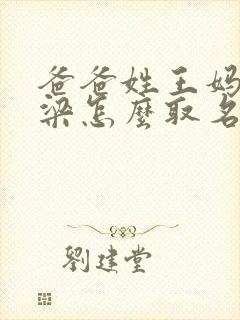 爸爸姓王妈
梁怎麼取名
劉建堂